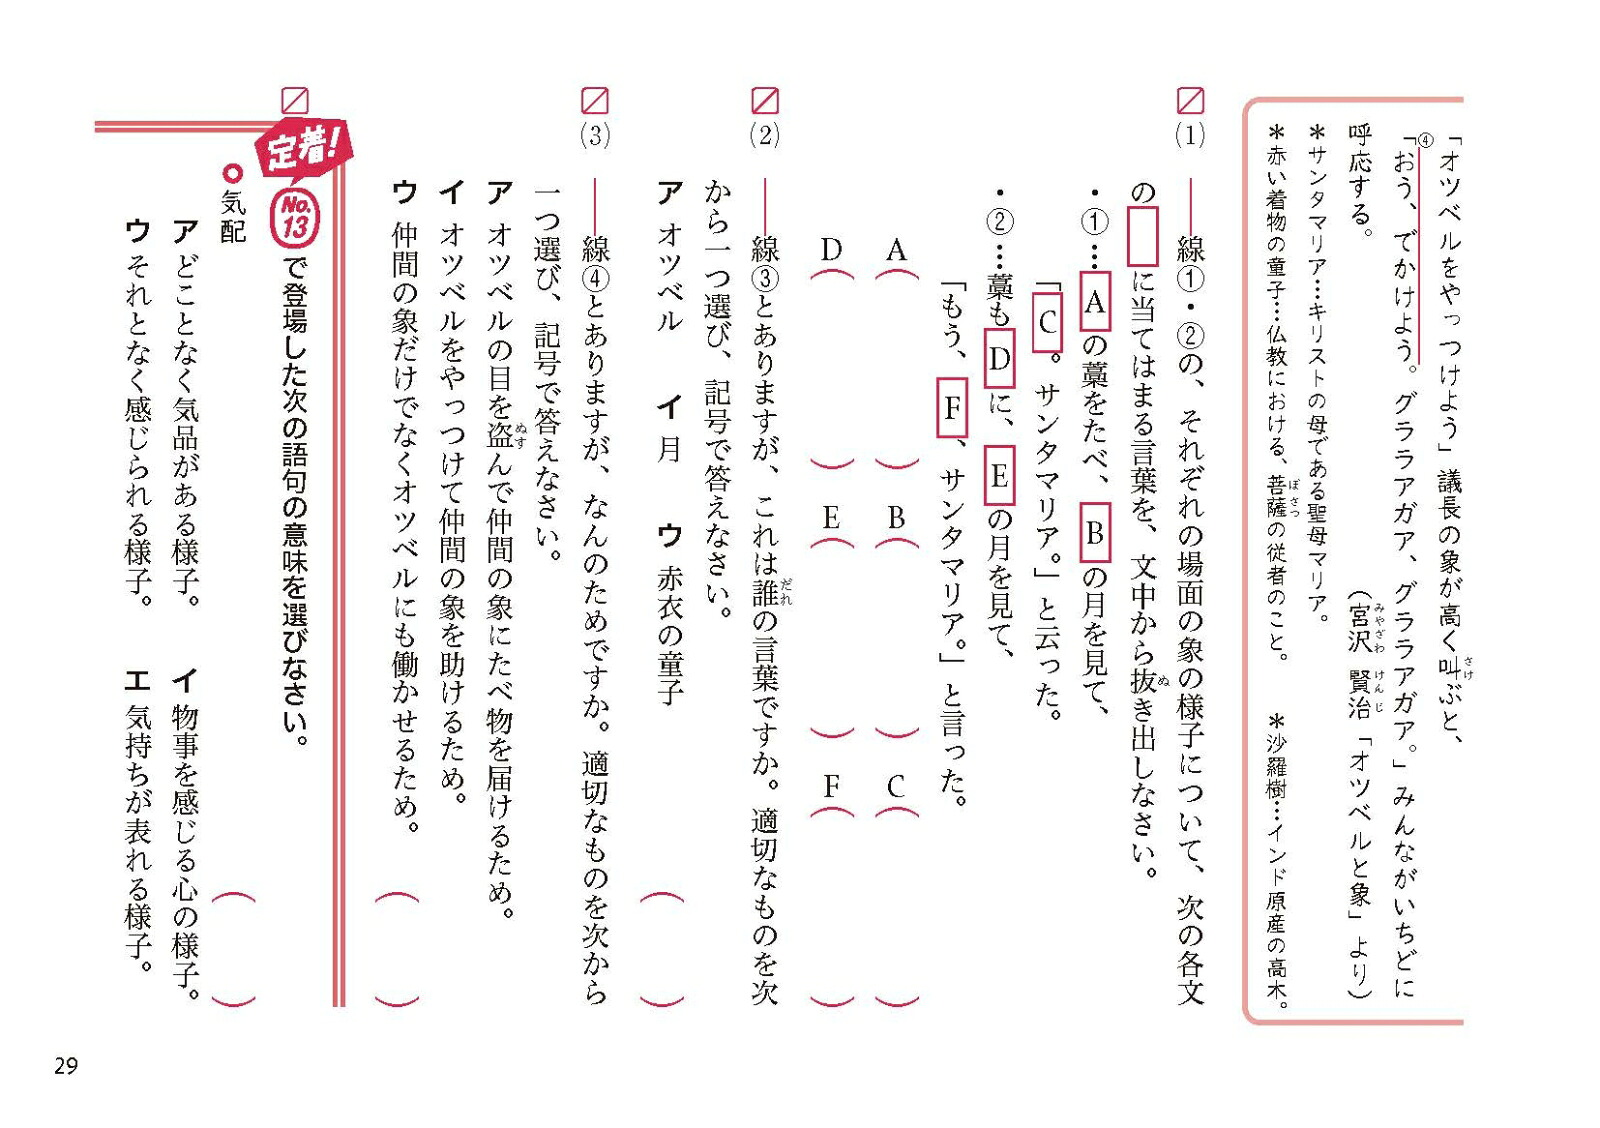 「オツベルをやっつけよう」議長の象が高く叫ぶと、
「おう、でかけよう。グララアガア、グララアガア。」みんながいちどに
④
呼応する。
（宮沢賢治「オツベルと象」より）
＊サンタマリア…キリストの母である聖母マリア。
＊赤い着物の童子…仏教における、菩薩の従者のこと。　＊沙羅樹…インド原産の高木。
(1) ――線①・②の、それぞれの場面の象の様子について、次の各文
の□に当てはまる言葉を、文中から抜き出しなさい。
・①…Aの藁をたべ、Bの月を見て、
「C。サンタマリア。」と云った。
・②…藁もDに、Eの月を見て、
「もう、F、サンタマリア。」と言った。
A（　）B（　）C（　）
D（　）E（　）F（　）
(2) ――線③とありますが、これは誰の言葉ですか。適切なものを次
から一つ選び、記号で答えなさい。
ア オツベル　イ 月　ウ 赤衣の童子
（　）
(3) ――線④とありますが、なんのためですか。適切なものを次から
一つ選び、記号で答えなさい。
ア オツベルの目を盗んで仲間の象にたべ物を届けるため。
イ オツベルをやっつけて仲間の象を助けるため。
ウ 仲間の象だけでなくオツベルにも働かせるため。
（　）
定着！ No.13 で登場した次の語句の意味を選びなさい。
気配
（　）
ア どことなく気品がある様子。　イ 物事を感じる心の様子。
ウ それとなく感じられる様子。　エ 気持ちが表れる様子。
さけ
みやざわ けんじ
ぼさつ
ぬ
だれ
ぬす
29